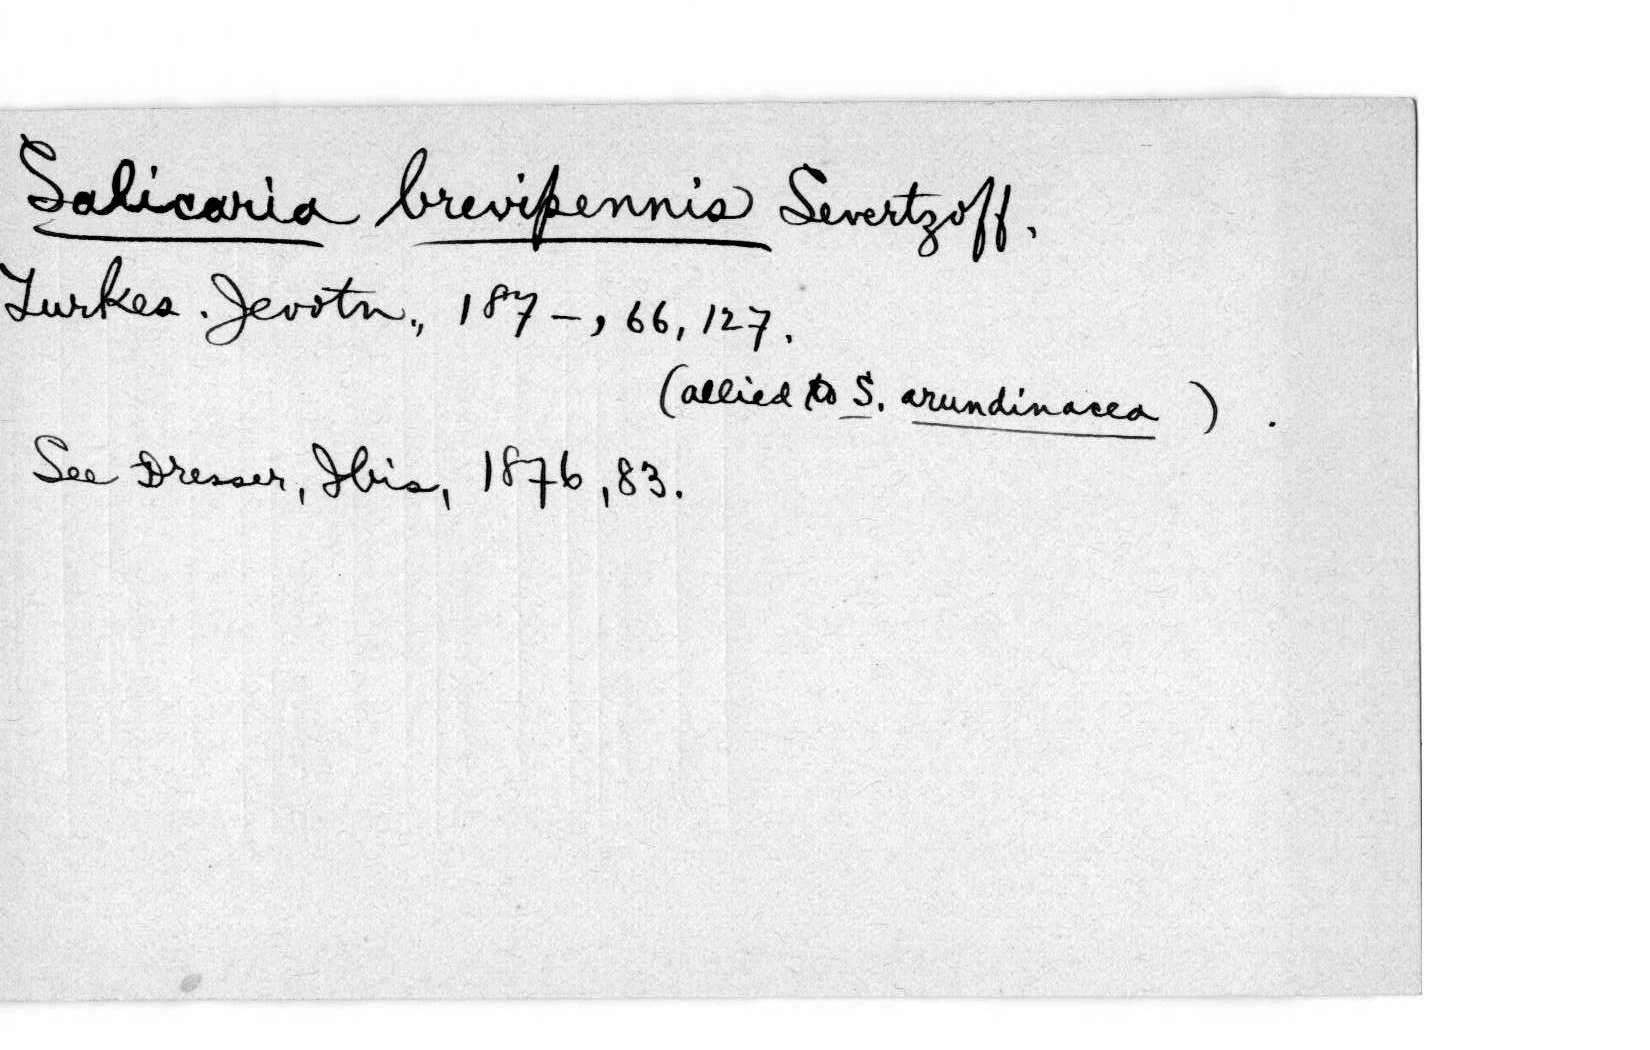 Salicaria brevipennis Severtzoff.
Turkes. Jevotn., 187-, 66, 127.
(allied to S. arundinacea ) .
See Dresser, Ibis, 1876, 83.